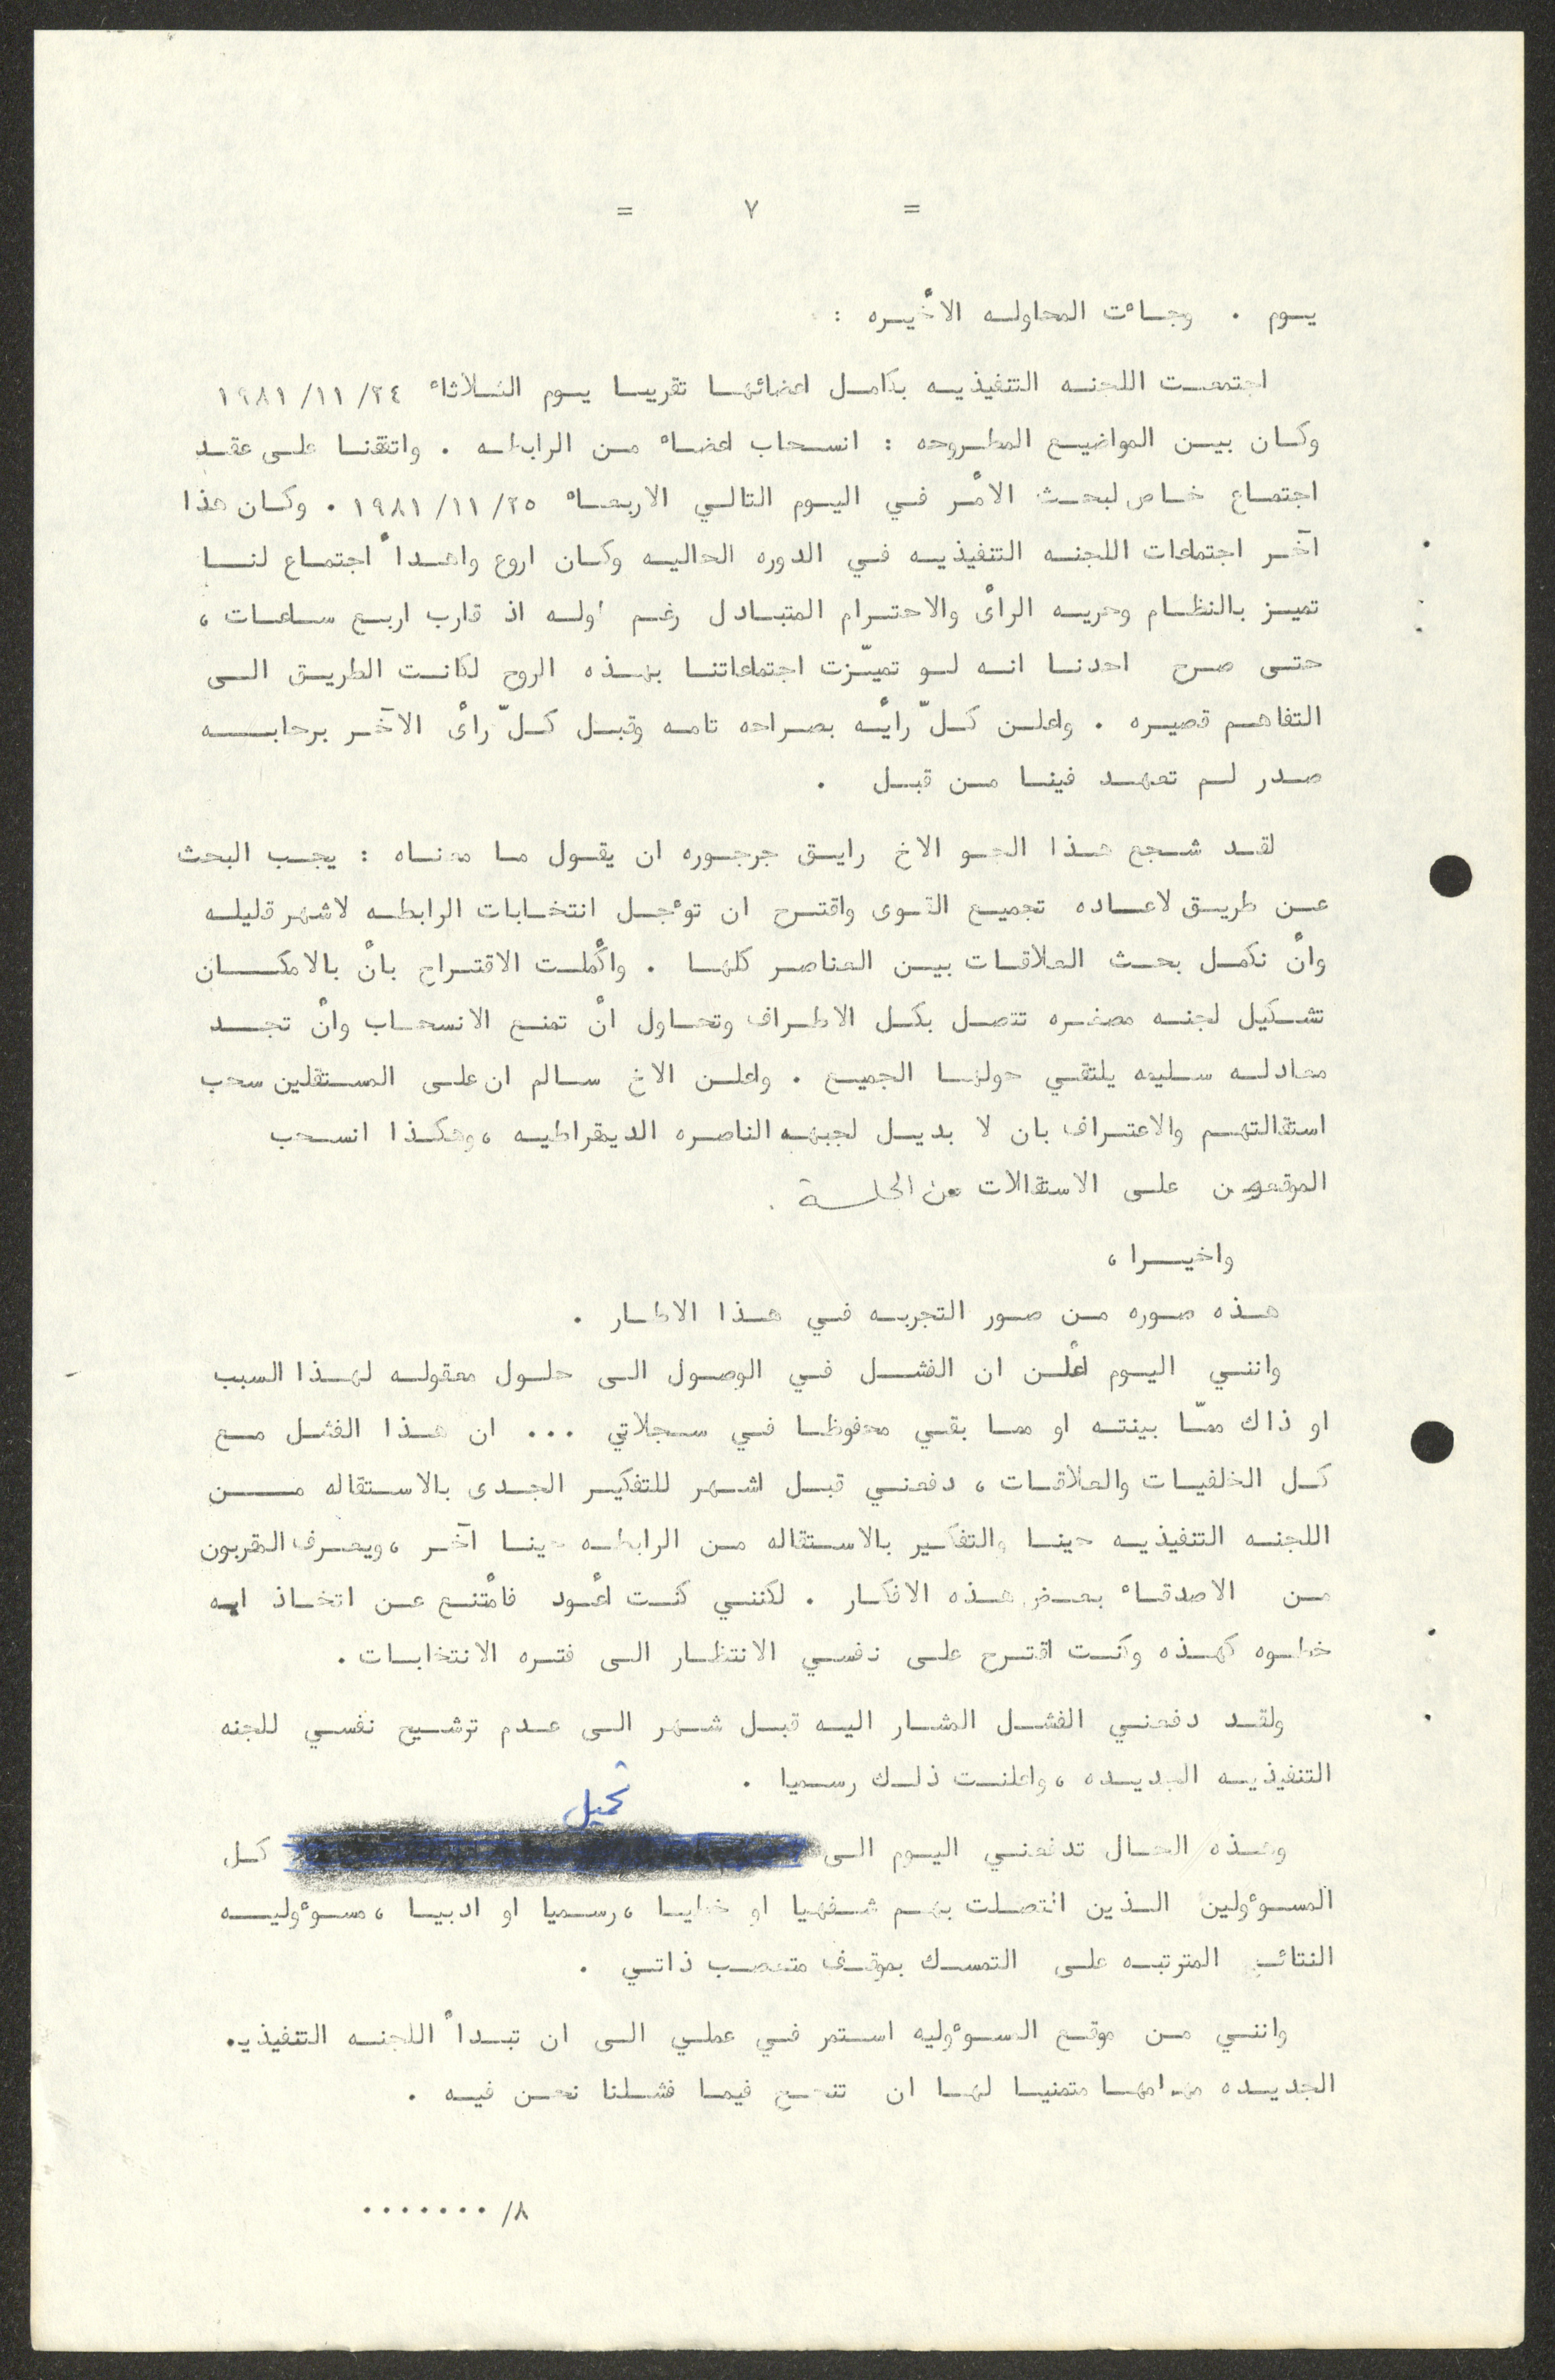 = ٧ =
يوم . وجاءت المحاوله الأخيره :
اجتمعت اللجنه التنفيذيه بكامل اعضائها تقريبا يوم الثلاثاء ٢٤/١١/١٩٨١
وكان بين المواضيع المطروحه : انسحاب اعضاء من الرابطه . واتفقنا على عقد
اجتماع خاص لبحث الأمر في اليوم التالي الاربعاء ٢٥/١١/١٩٨١ . وكان هذا
آخر اجتماعات اللجنه التنفيذيه في الدوره الحاليه وكان اروع واهدأ اجتماع لنا
تميز بالنظام وحريه الرأى والاحترام المتبادل رغم طوله اذ قارب اربع ساعات ،
حتى صرح احدنا انه لو تميّزت اجتماعاتنا بهذه الروح لكانت الطريق الى
التفاهم قصيره . واعلن كلّ رأيه بصراحه تامه وقبل كلّ رأى الآخر برحابه
صدر لم تعهد فينا من قبل .
لقد شجع هذا الجو الاخ رايق جرجوره ان يقول ما معناه : يجب البحث
عن طريق لاعاده تجميع القوى واقترح ان تؤجل انتخابات الرابطه لاشهر قليله
وأن نكمل بحث العلاقات بين العناصر كلها . وأكملت الاقتراح بأن بالامكان
تشكيل لجنه مصغره تتصل بكل الاطراف وتحاول أن تمنع الانسحاب وأن تجد
معادله سليمه يلتقي حولها الجميع . واعلن الاخ سالم ان على المستقلين سحب
استقالتهم والاعتراف بان لا بديل لجبهه الناصره الديمقراطيه ، وهكذا انسحب
الموقعون على الاستقالات من الجلسة .
واخيرا ،
هذه صوره من صور التجربه في هذا الاطار .
وانني اليوم أعلن ان الفشل في الوصول الى حلول معقوله لهذا السبب
او ذاك ممّا بينته او مما بقي محفوظا في سجلاتي ... ان هذا الفشل مع
كل الخلفيات والعلاقات ، دفعني قبل اشهر للتفكير الجدى بالاستقاله من
اللجنه التنفيذيه حينا والتفكير بالاستقاله من الرابطه حينا آخر ، ويعرف المقربون
من الاصدقاء بعض هذه الافكار . لكنني كنت أعود فأمتنع عن اتخاذ ايه
خطوه كهذه وكنت اقترح على نفسي الانتظار الى فتره الانتخابات .
ولقد دفعني الفشل المشار اليه قبل شهر الى عدم ترشيح نفسي للجنه
التنفيذيه الجديده ، واعلنت ذلك رسميا .
وهذه الحال تدفعني اليوم الى تحميل كل
المسؤولين الذين اتصلت بهم شفهيا او خطيا ، رسميا او ادبيا ، مسؤوليه
النتائج المترتبه على التمسك بموقف متعصب ذاتي .
وانني من موقع المسؤوليه استمر في عملي الى ان تبدأ اللجنه التنفيذيه
الجديده مهامها متمنيا لها ان تنجح فيما فشلنا نحن فيه .
٨/ .......